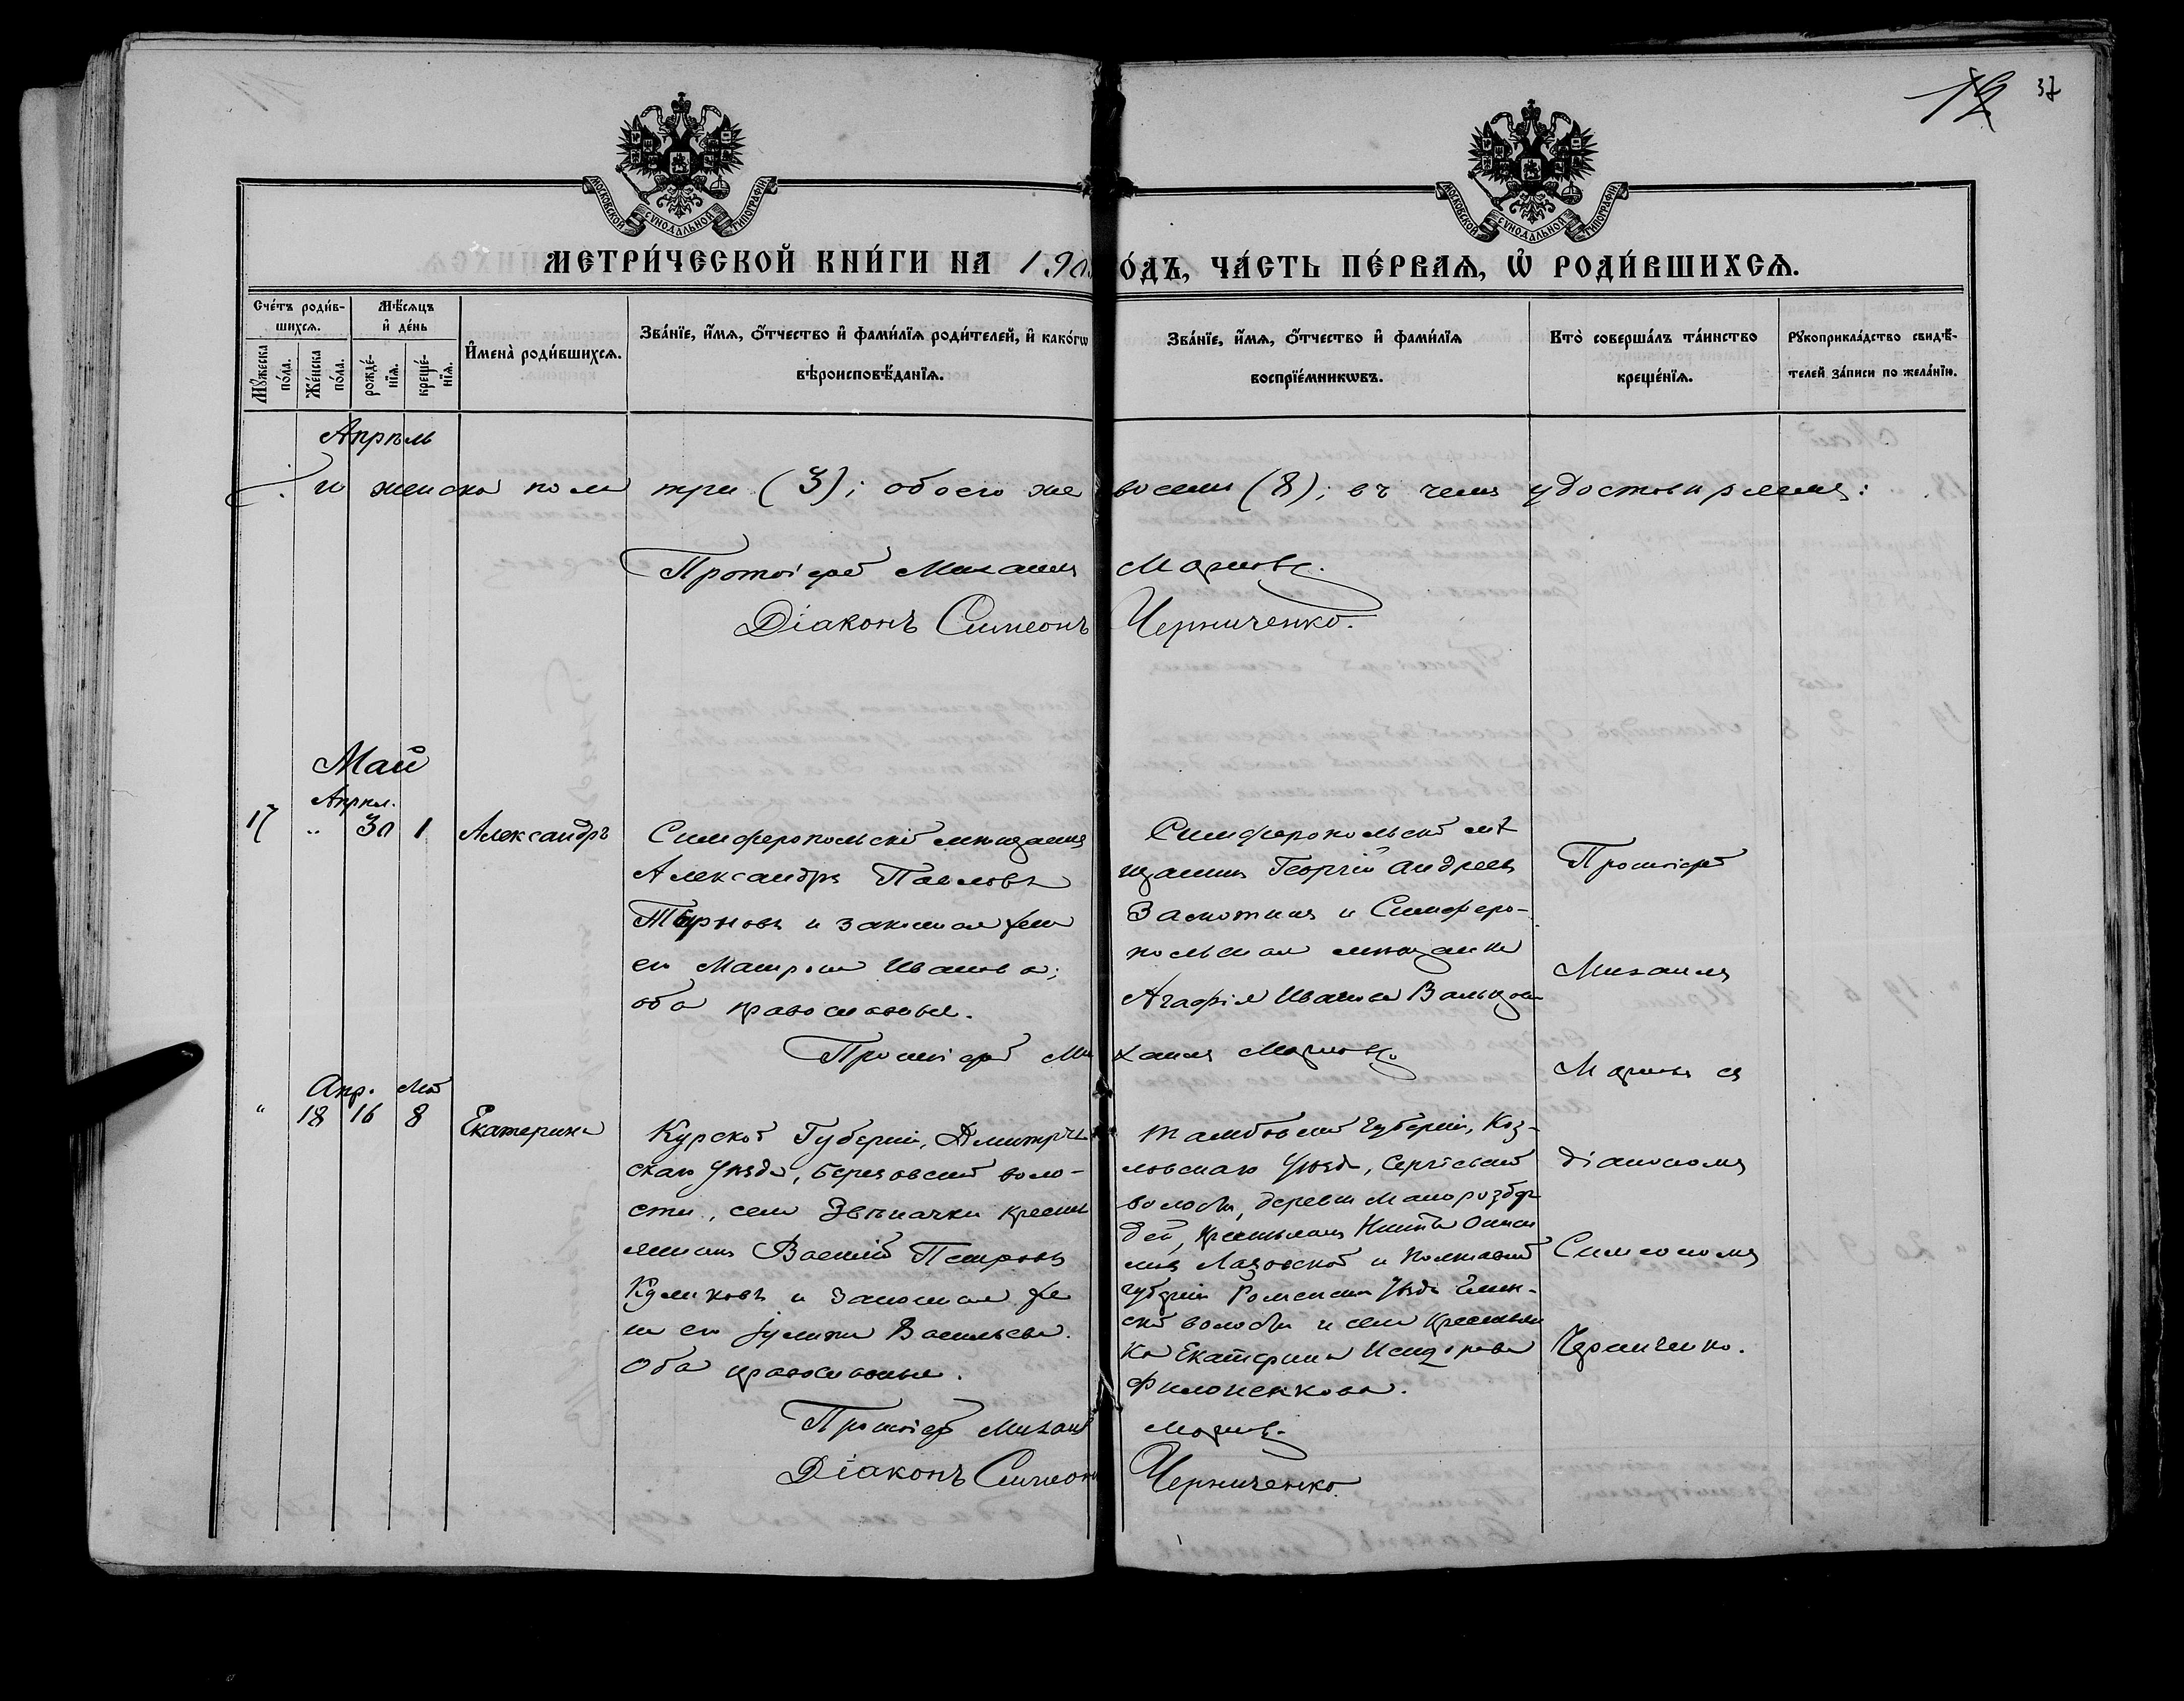 37
МОСКОВСКОЙ СУНОДАЛЬНОЙ ТИПОГРАФІИ
МОСКОВСКОЙ СУНОДАЛЬНОЙ ТИПОГРАФІИ
МЕТРИ́ЧЕСКОЙ КНИ́ГИ НА 190 О́ДЪ, ЧА́СТЬ ПЕ́РВАѦ, Ѡ҆ РОДИ́ВШИХСѦ.
Сче́тъ роди́в-
шихсѧ.
Мѣ́сѧцъ
и҆ де́нь
Мꙋ́жеска
по́ла.
Же́нска
по́ла.
рожде́-
нїѧ.
креще́-
нїѧ.
И҆мена̀ роди́вшихсѧ.
Зва́нїе, и҆́мѧ, ѻ҆́тчество и҆ фами́лїѧ роди́телей, и҆ како́гѡ
вѣроисповѣ́данїѧ.
Зва́нїе, и҆́мѧ, ѻ҆́тчество и҆ фами́лїѧ
воспрїе́мникѡвъ.
Кто̀ соверша́лъ та́инство
креще́нїѧ.
Рꙋкоприкла́дство свидѣ́-
телей за́писи по жела́нїю.
Апрѣль
женска пола три (3); обоего же восемь (8); въ чемъ удостовѣряемъ:
Протоіерей Михаилъ Марковъ.
Діаконъ Симеонъ Черниченко.
Май
Апрѣл.
17 " 30 1 Александръ
Симферопольскій мѣщанинъ
Александръ Павловъ
и законная жена
его Матрона Иванова;
оба православные.
Симферопольскій мѣ
щанинъ Георгій Андреевъ
и Симферо-
польская мѣщанка
Агафія Иванова
Протоіерей
Михаилъ
Протоіерей Михаилъ Марковъ.
Апр. Май
" 18 16 8 Екатерина
Курской Губерніи, Дмитріев
скаго уѣзда, Березовской воло-
сти, села Звѣнячки кресть
янинъ Василій Петровъ
Куликовъ и законная же
на его Іулитта Васильева.
Оба православные.
Тамбовской губерніи, Коз-
ловскаго уѣзда, Сергіевской
волости, деревни
крестьянинъ Никита
Лазовской и Полтавской
губерніи Роменскаго уѣзда
волости и села крестьян
ка Екатерина Исидорова
Филоненкова.
діакономъ
Симеономъ
Черниченко.
Протоіерей Михаилъ Марковъ.
Діаконъ Симеонъ Черниченко